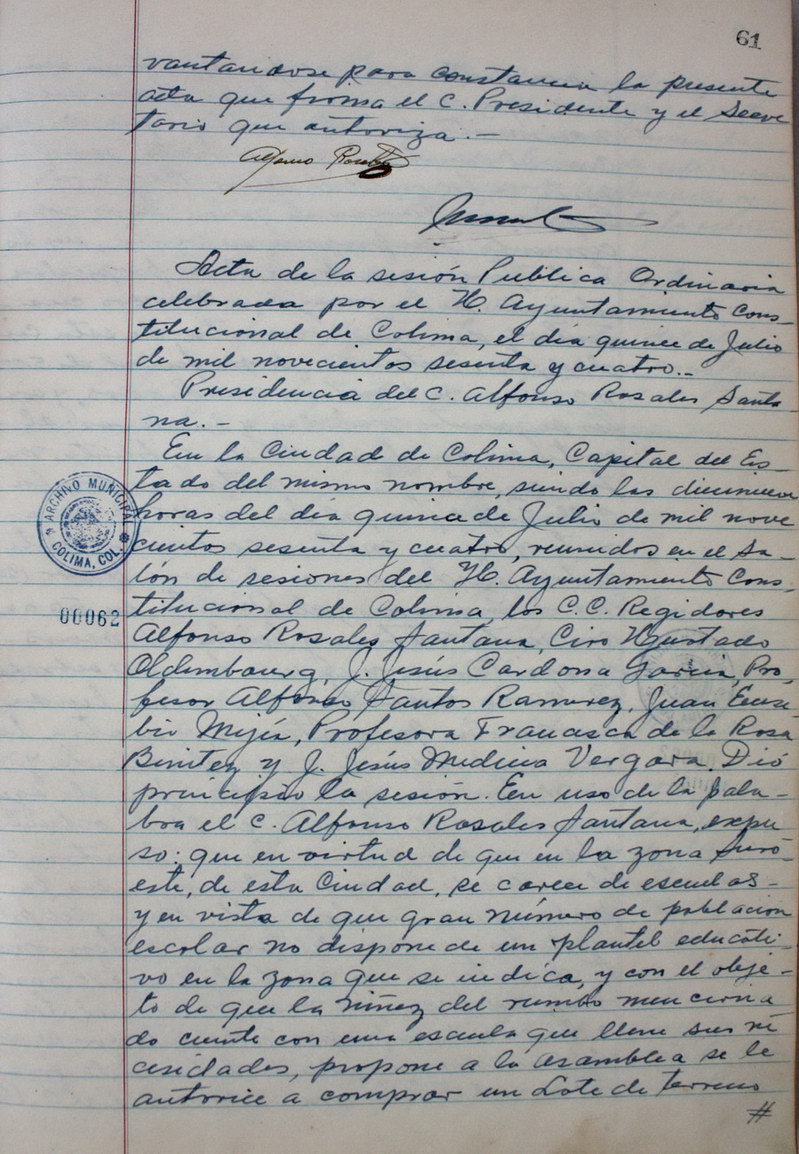 61
vantandose para constancia la presente
acta que firma el C. Presidente y el Secre
tario que autoriza.-
Acta de la sesión Publica Ordinaria
celebrada por el H. Ayuntamiento Cons-
titucional de Colima, el día quince de Julio
de mil novecientos sesenta y cuatro.-
Presidencia del C. Alfonso Rosales Santa-
na.-
En la Ciudad de Colima, Capital del Es-
tado del mismo nombre, siendo las diecinueve
horas del día quince de Julio de mil nove
cientos sesenta y cuatro, reunidos en el Sa-
lón de sesiones del H. Ayuntamiento Cons-
titucional de Colima, los C.C. Regidores
Alfonso Rosales Santana, Ciro Hurtado
Oldembourg, J. Jesús Cardona García, Pro-
fesor Alfonso Santos Ramirez, Juan Euse-
bio Mejía, Profesora Francisca de la Rosa
Benitez y J. Jesús Medina Vergara. Dió
principio la sesión. En uso de la pala-
bra el C. Alfonso Rosales Santana, expu-
so: que en virtud de que en la zona
este, de esta Ciudad, se carece de escuelas-
y en vista de que gran número de poblacion
escolar no dispone de un plantel educati-
vo en la zona que se indica, y con el obje-
to de que la niñez del rumbo menciona
do cuente con una escuela que llene sus ne
cesidades, propone a la asamblea se le
autorice a comprar un Lote de terreno
#
ARCHIVO MUNICIPAL
COLIMA, COL.
00062